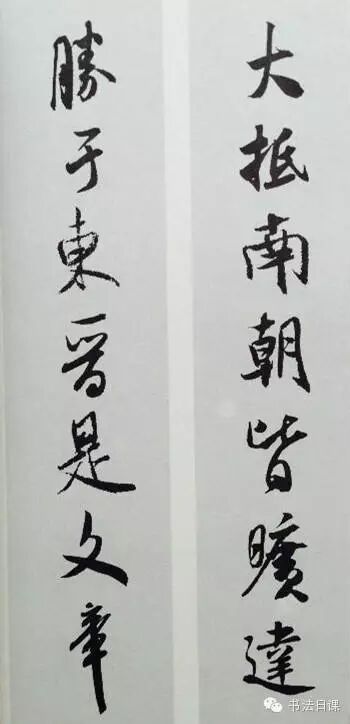 大抵南朝皆曠達
勝于東晋是文章
书法日课